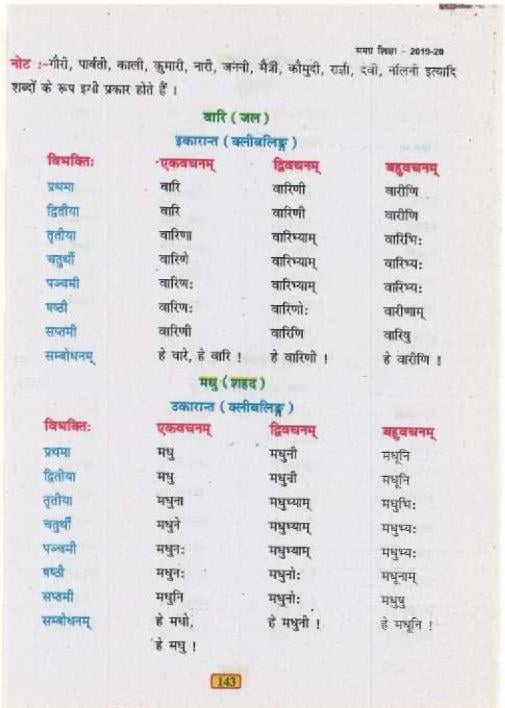 समग्र शिक्षा - 2019-20
नोट :-गौरी, पार्वती, काली, कुमारी, नारी, जननी, मैत्री, कौमुदी, राज्ञी, देवी, नलिनी इत्यादि
शब्दों के रूप इसी प्रकार होते हैं ।
वारि ( जल )
इकारान्त ( क्लीबलिङ्ग )
विभक्तिः एकवचनम् द्विवचनम् बहुवचनम्
प्रथमा वारि वारिणी वारीणि
द्वितीया वारि वारिणी वारीणि
तृतीया वारिणा वारिभ्याम् वारिभिः
चतुर्थी वारिणे वारिभ्याम् वारिभ्यः
पञ्चमी वारिणः वारिभ्याम् वारिभ्यः
षष्ठी वारिणः वारिणोः वारीणाम्
सप्तमी वारिणी वारिणि वारिषु
सम्बोधनम् हे वारे, हे वारि ! हे वारिणी ! हे वारीणि !
मधु ( शहद )
उकारान्त ( क्लीबलिङ्ग )
विभक्तिः एकवचनम् द्विवचनम् बहुवचनम्
प्रथमा मधु मधुनी मधूनि
द्वितीया मधु मधुनी मधूनि
तृतीया मधुना मधुभ्याम् मधुभिः
चतुर्थी मधुने मधुभ्याम् मधुभ्यः
पञ्चमी मधुनः मधुभ्याम् मधुभ्यः
षष्ठी मधुनः मधुनोः मधूनाम्
सप्तमी मधुनि मधुनोः मधुषु
सम्बोधनम् हे मधो, हे मधुनी ! हे मधूनि !
हे मधु !
143